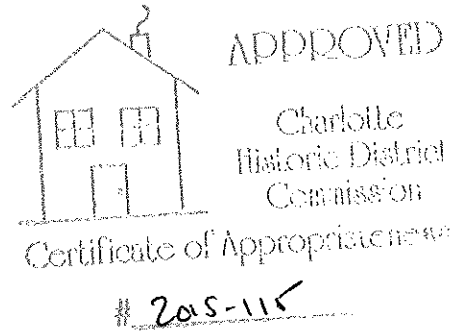 APPROVED
Charlotte
Historic District
Commission
Certificate of Appropriateness
# 2015-115